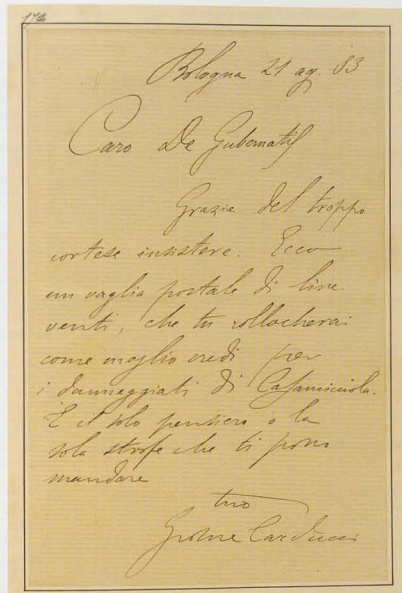 174
Bologna 21 ag. 83
Caro De Gubernatis
Grazie del troppo
cortese insistere. Ecco
un vaglia postale di lire
venti, che tu collocherai
come meglio credi per
i danneggiati di Casamicciola.
È il solo pensiero o la
sola strofe che ti posso
mandare
tuo
Giosue Carducci